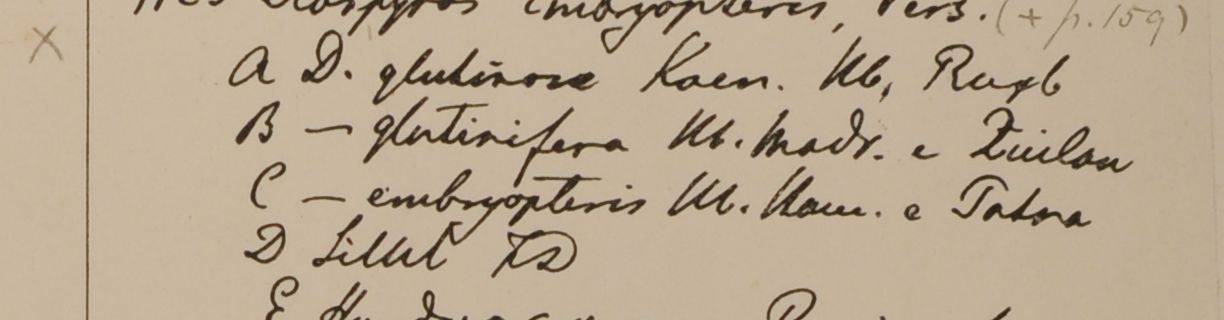 Diospyros Embryopteris, Pers. (+ p. 159)
X
A D. glutinosa Koen. Hb, Roxb
B — glutinifera Hb. Madr. e Zeilan
C — embryopteris Hb. Ham. e Patna
D Sillet FD
E